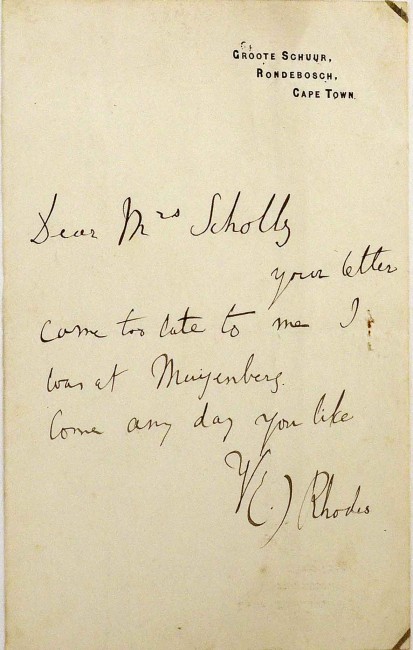 GROOTE SCHUUR,
RONDEBOSCH,
CAPE TOWN.
Dear Mrs Scholtz
your letter
came too late to me I
was at Muizenberg.
Come any day you like
Yrs C. J. Rhodes